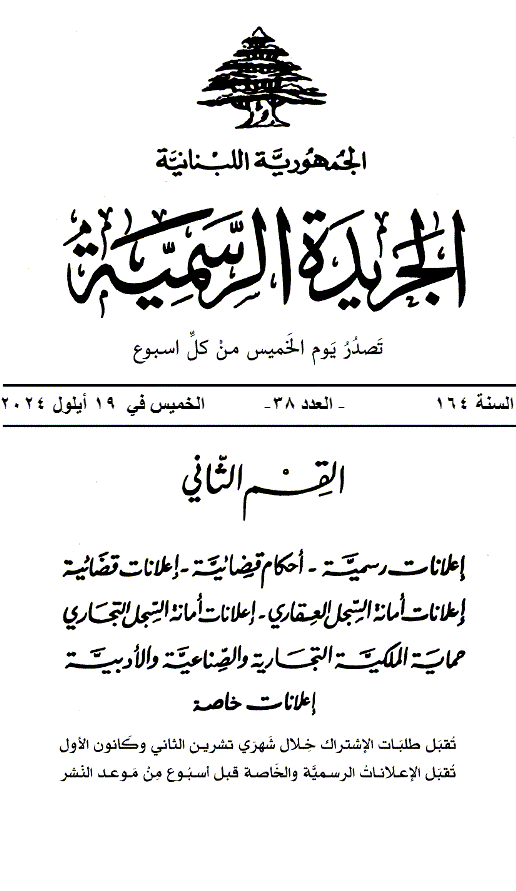 الجمهورية اللبنانية
الجريدة الرسمية
تصدُرُ يَوم الخَميس منْ كلِّ اسبوع
السنة ١٦٤ - العدد ٣٨- الخميس في ١٩ أيلول ٢٠٢٤
القِسْم الثّاني
إعلانات رسميَّة - أحكام قضائيَّة - إعلانات قضائية
إعلانات أمانة السِّجل العِقاري - إعلانات أمانة السِّجل التجاري
حماية الملكيَّة التجارية والصِّناعيَّة والأدبيَّة
إعلانات خاصة
تُقبَل طلبَات الإشتراك خِلال شَهرَي تشرين الثاني وكَانون الأول
تُقبَل الإعلاناتُ الرسميَّة والخَاصة قبل أسبُوع مِنْ مَوعد النَشر